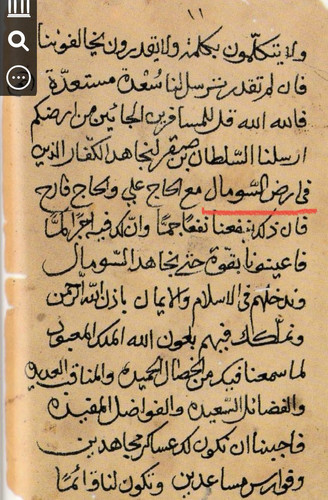 ١١
ولا يتكلمون بكلمة ولا يقدرون يخالفوننا
فان لم تقدر ترسل لنا سُعْدة مستعدّة
فالله الله قل للمسافرين الجائين من ارضكم
ارسلنا السّلطان بن صيقر لنجاهد الكفّار الذين
فى ارض السّومال مع الحاج علي والحاج فارح
فان ذلك ينفعنا نفعا جمّا وانّ لكم فيه اجرًا لمّا
فاعينونا بقوّة حتى نجاهد السّومال
وندخلهم فى الاسلام والايمان باذن الله الرحمن
ونملّكك فيهم بعون الله الملك المعبود
لما سمعنا فيك من الخصال الحميدة والمناقب العديدة
والفضائل السّعيدة والفواضل المفيدة
فاحببنا ان تكون لك عساكر مجاهدين
وفوارس مساعدين وتكون لنا قائمًا